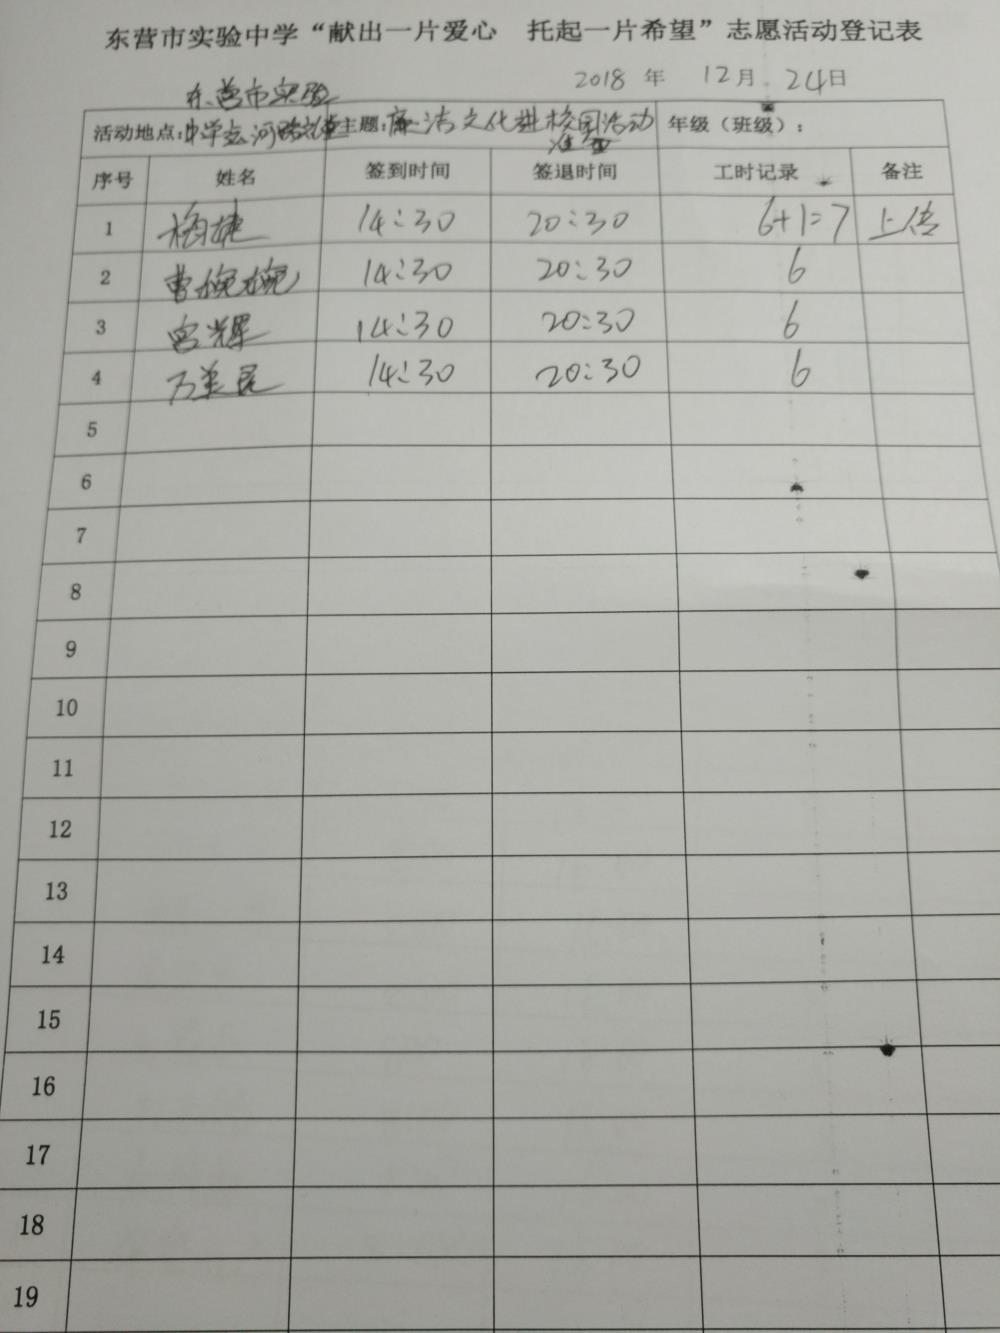 东营市实验中学“献出一片爱心 托起一片希望”志愿活动登记表
2018 年 12月 24日
东营市实验
活动地点：中学 河 主题：廉洁文化进校园活动 年级（班级）：
准备
序号 姓名 签到时间 签退时间 工时记录 备注
1 捷 14:30 20:30 6+1=7 上传
2 曹婉婉 14:30 20:30 6
3 宫辉 14:30 20:30 6
4 万 14:30 20:30 6
5
6
7
8
9
10
11
12
13
14
15
16
17
18
19